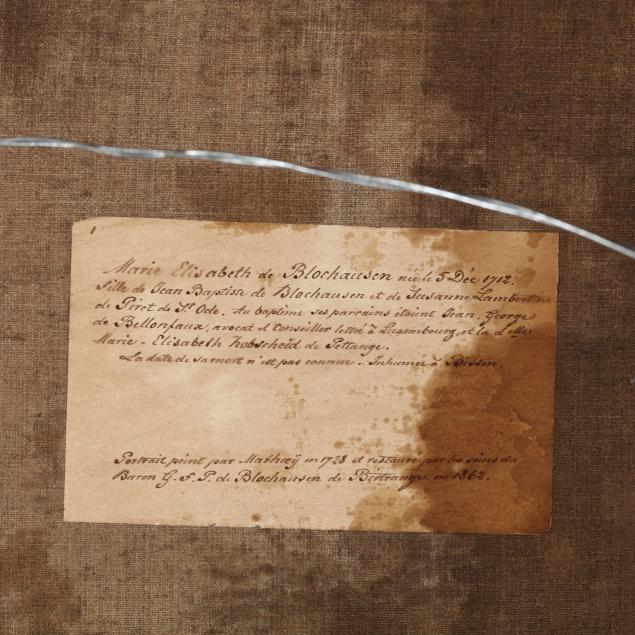 Marie Elisabeth de Blochausen née le 5 Déc 1712.
Fille de Jean Baptiste de Blochausen et de Susanne Lambertine
de Piret de St Ode. Au baptême ses parrains étoient Jean, George
de Bellonfaux, avocat et Conseiller lettré à Luxembourg, et la delle
Marie - Elisabeth hobscheid de Pettange.
La date de sa mort n'est pas connue. Inhumée à Bissen.
Portrait peint par Mathaÿ en 1728 et restauré par les soins du
Baron G. F. P. de Blochausen de Birtrange en 1862.